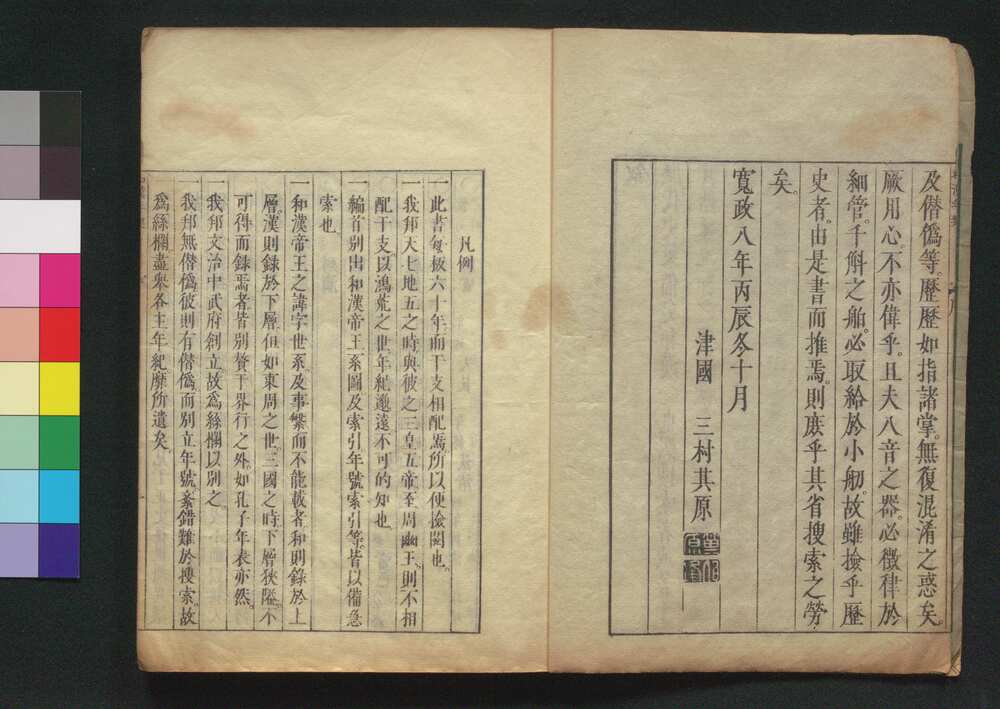 及僭僞等。歷歷如指諸掌。無復混淆之惑矣。
厥用心。不亦偉乎。且夫八音之器。必徵律於
細管。千斛之船。必取給於小舠。故雖撿乎歷
史者。由是書而推焉。則庶乎其省搜索之勞
矣。
寬政八年丙辰冬十月
津國 三村其原
凡例
一此書每板六十年。而干支相配焉。所以便撿閱也。
一我邦天七地五之時與彼之三皇五帝至周幽王。則不相
配干支。以鴻荒之世年紀邈遠不可的知也
一編首別出和漢帝王系圖及索引年號索引等。皆以備急
索也
一和漢帝王之諱字世系。及事繁而不能載者。和則錄於上
層。漢則錄於下層。但如東周之世。三國之時下層狹隘。不
可得而錄焉者。皆別贅于界行之外。如孔子年表亦然。
一我邦文治中武府創立。故爲絲欄以別之
一我邦無僭僞。彼則有僭僞。而別立年號。紊錯難於搜索。故
爲絲欄盡舉各主年紀靡所遺矣